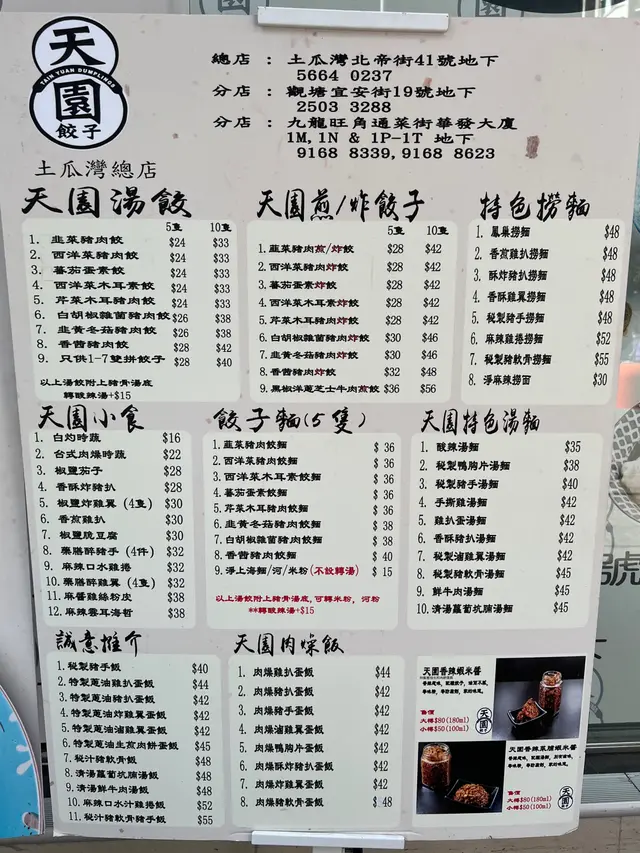 天
TAIN YUAN DUMPLINGS
園
餃子
總店 : 土瓜灣北帝街41號地下
5664 0237
分店 : 觀塘宜安街19號地下
2503 3288
分店 : 九龍旺角通菜街華發大廈
1M, 1N & 1P-1T 地下
9168 8339, 9168 8623
土瓜灣總店
天園湯餃
5隻 10隻
1. 韭菜豬肉餃 $24 $33
2. 西洋菜豬肉餃 $24 $33
3. 蕃茄蛋素餃 $24 $33
4. 西洋菜木耳素餃 $24 $33
5. 芹菜木耳豬肉餃 $24 $33
6. 白胡椒雜菌豬肉餃 $26 $38
7. 韭黃冬菇豬肉餃 $26 $38
8. 香茜豬肉餃 $28 $42
9. 只供1-7雙拼餃子 $28 $40
以上湯餃附上豬骨湯底
轉酸辣湯+$15
天園煎/炸餃子
5隻 10隻
1. 韮菜豬肉煎/炸餃 $28 $42
2. 西洋菜豬肉炸餃 $28 $42
3. 蕃茄蛋素炸餃 $28 $42
4. 西洋菜木耳素炸餃 $28 $42
5. 芹菜木耳豬肉炸餃 $28 $42
6. 白胡椒雜菌豬肉炸餃 $30 $46
7. 韭黃冬菇豬肉炸餃 $30 $46
8. 香茜豬肉炸餃 $32 $48
9. 黑椒洋蔥芝士牛肉煎餃 $36 $56
特色撈麵
1. 鳳巢撈麵 $48
2. 香煎雞扒撈麵 $48
3. 酥炸豬扒撈麵 $48
4. 香酥雞翼撈麵 $48
5. 秘製豬手撈麵 $48
6. 麻辣雞捲撈麵 $52
7. 秘製豬軟骨撈麵 $55
8. 淨麻辣撈面 $30
天園小食
1. 白灼時蔬 $16
2. 台式肉燥時蔬 $22
3. 椒鹽茄子 $28
4. 香酥炸豬扒 $28
5. 椒鹽炸雞翼 (4隻) $30
6. 香煎雞扒 $30
7. 椒鹽脆豆腐 $30
8. 藥膳醉豬手 (4件) $32
9. 麻辣口水雞捲 $32
10. 藥膳醉雞翼 (4隻) $32
11. 麻醬雞絲粉皮 $38
12. 麻辣雲耳海哲 $38
餃子麵(5隻)
1. 韮菜豬肉餃麵 $ 36
2. 西洋菜豬肉餃麵 $ 36
3. 西洋菜木耳素餃麵 $ 36
4. 蕃茄蛋素餃麵 $ 36
5. 芹菜木耳豬肉餃麵 $ 36
6. 韭黃冬菇豬肉餃麵 $ 38
7. 白胡椒雜菌豬肉餃麵 $ 38
8. 香茜豬肉餃麵 $ 40
9. 淨上海麵/河/米粉(不設轉湯) $ 15
以上湯餃附上豬骨湯底, 可轉米粉, 河粉
**轉酸辣湯+$15
天園特色湯麵
1. 酸辣湯麵 $35
2. 秘製鴨胸片湯麵 $38
3. 秘製豬手湯麵 $40
4. 手撕雞湯麵 $42
5. 雞扒蛋湯麵 $42
6. 香酥豬扒湯麵 $42
7. 秘製滷雞翼湯麵 $42
8. 秘製豬軟骨湯麵 $45
9. 鮮牛肉湯麵 $45
10. 清湯蘿蔔坑腩湯麵 $45
誠意推介
1. 秘製豬手飯 $40
2. 特製蔥油雞扒蛋飯 $44
3. 特製蔥油豬扒蛋飯 $42
4. 特製蔥油炸雞翼蛋飯 $42
5. 特製蔥油滷雞翼蛋飯 $42
6. 特製蔥油生煎肉餅蛋飯 $45
7. 秘汁豬軟骨飯 $48
8. 清湯蘿蔔坑腩湯飯 $48
9. 清湯鮮牛肉湯飯 $48
10. 麻辣口水汁雞捲飯 $52
11. 秘汁豬軟骨豬手飯 $55
天園肉燥飯
1. 肉燥雞扒蛋飯 $44
2. 肉燥豬扒蛋飯 $42
3. 肉燥豬手蛋飯 $42
4. 肉燥滷雞翼蛋飯 $42
5. 肉燥鴨胸片蛋飯 $42
6. 肉燥酥炸豬扒蛋飯 $42
7. 肉燥炸雞翼蛋飯 $42
8. 肉燥豬軟骨蛋飯 $ 48
天園香辣蝦米醬
售價
大樽$80(180ml)
小樽$50(100ml)
天園香辣菜脯蝦米醬
售價
大樽$80(180ml)
小樽$50(100ml)
號